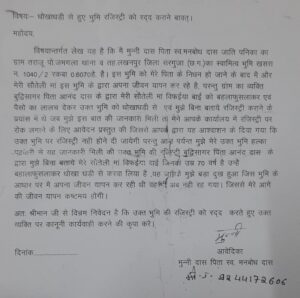 विषयः- धोखाधड़ी से हुए भूमि रजिस्ट्री को रद्द कराने बाबत्।
महोदय,
विषयान्तर्गत लेख यह है कि मै मुन्नी दास पिता स्व.मनबोध दास जाति पनिका का
ग्राम तराजू पो.जमगला थाना व तह.लखनपुर जिला सरगुजा (छ.ग.)का स्वामित्व भूमि खसरा
न. 1040/2 रकबा 0.607हे. है। इस भूमि को मेरे पिता के निधन हो जाने के बाद में और
मेरी सौतेली मां इस भूमि के द्वारा अपना जीवन यापन कर रहे है, परन्तु ग्राम का व्यक्ति
बुद्धिसागर पिता आनन्द दास के द्वारा मेरी सौतेली मां बाई को बहलाफुसलाकर एवं
पैसों का लालच देकर उक्त भूमि को धोखाधड़ी से एवं मुझे बिना बताये रजिस्ट्री कराने के
प्रयास में थे जब मुझे इस बात की जानकारी मिली तो मेने आपके कार्यालय में रजिस्ट्री पर
रोक लगाने के लिए आवेदन प्रस्तुत की जिससे आपके द्वारा यह आश्वाशन के दिया गया कि
उक्त भूमि पर रजिस्ट्री नही होने दी जायेगी परन्तु आज पर्यन्त मुझे मेरे भूमि हल्का
से यह जानकारी मिली की उक्त भूमि की रजिस्ट्री बुद्धिसागर पिता आनंद दास के
द्वारा मुझे बिना बताये मेरे सौतेली मां बाई जिनकी उम्र 70 वर्ष है उन्हें
बहलाफुसलाकर धोखा धड़ी से करवा लिया है जिससे मुझे बड़ा दुख हुआ जिस भूमि के
आधार पर मै अपना जीवन यापन कर रही थी वह अब नही रह गया। जिससे मेरे आगे
की जीवन यापन कष्टमय होगी।
अतः श्रीमान जी से विनम्र निवेदन है कि उक्त भूमि की रजिस्ट्री को रद्द करते हुए उक्त
व्यक्ति पर कानूनी कार्यवाही करने की कृपा करें।
मुन्नी
दिनांक
आवेदिका
मुन्नी दास पिता स्व. मनबोध दास